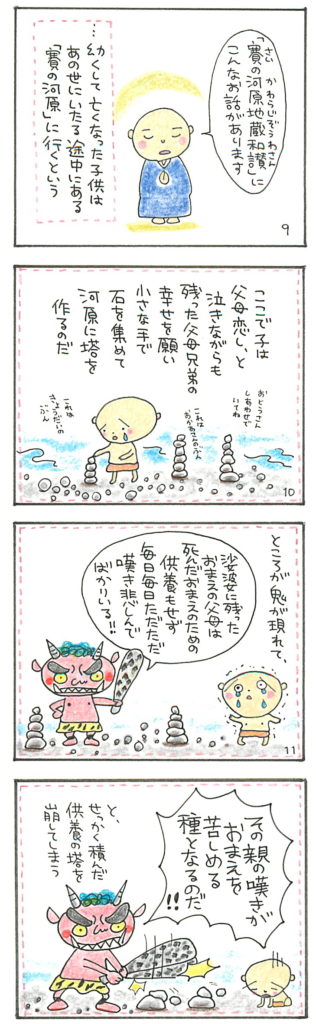 「賽の河原地蔵和讃」に
さい かわらじぞうわさん
こんなお話があります
…幼くして亡くなった子供は
あの世にいたる途中にある
「賽の河原」に行くという
9
ここで子は
父母恋し、と
泣きながらも
残った父母兄弟の
幸せを願い
小さな手で
石を集めて
河原に塔を
作るのだ
おとうさん
しあわせで
いてね
これは
おかあさんのぶん
これは
きょうだいの
ぶん
10
ところが鬼が現れて、
娑婆に残った
おまえの父母は
死んだおまえのための
供養もせず
毎日毎日ただただ
嘆き悲しんで
ばかりいる!!
11
その親の嘆きが
おまえを
苦しめる
種となるのだ
!!
と、
せっかく積んだ
供養の塔を
崩してしまう